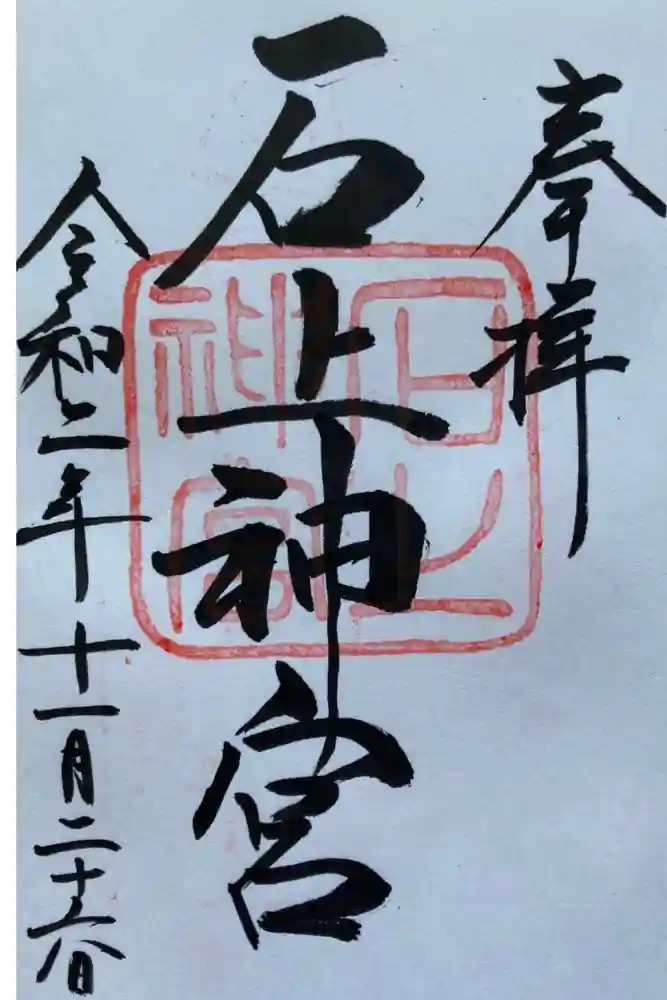 奉拝
石上神宮
石上
神宮
令和二年十一月二十六日